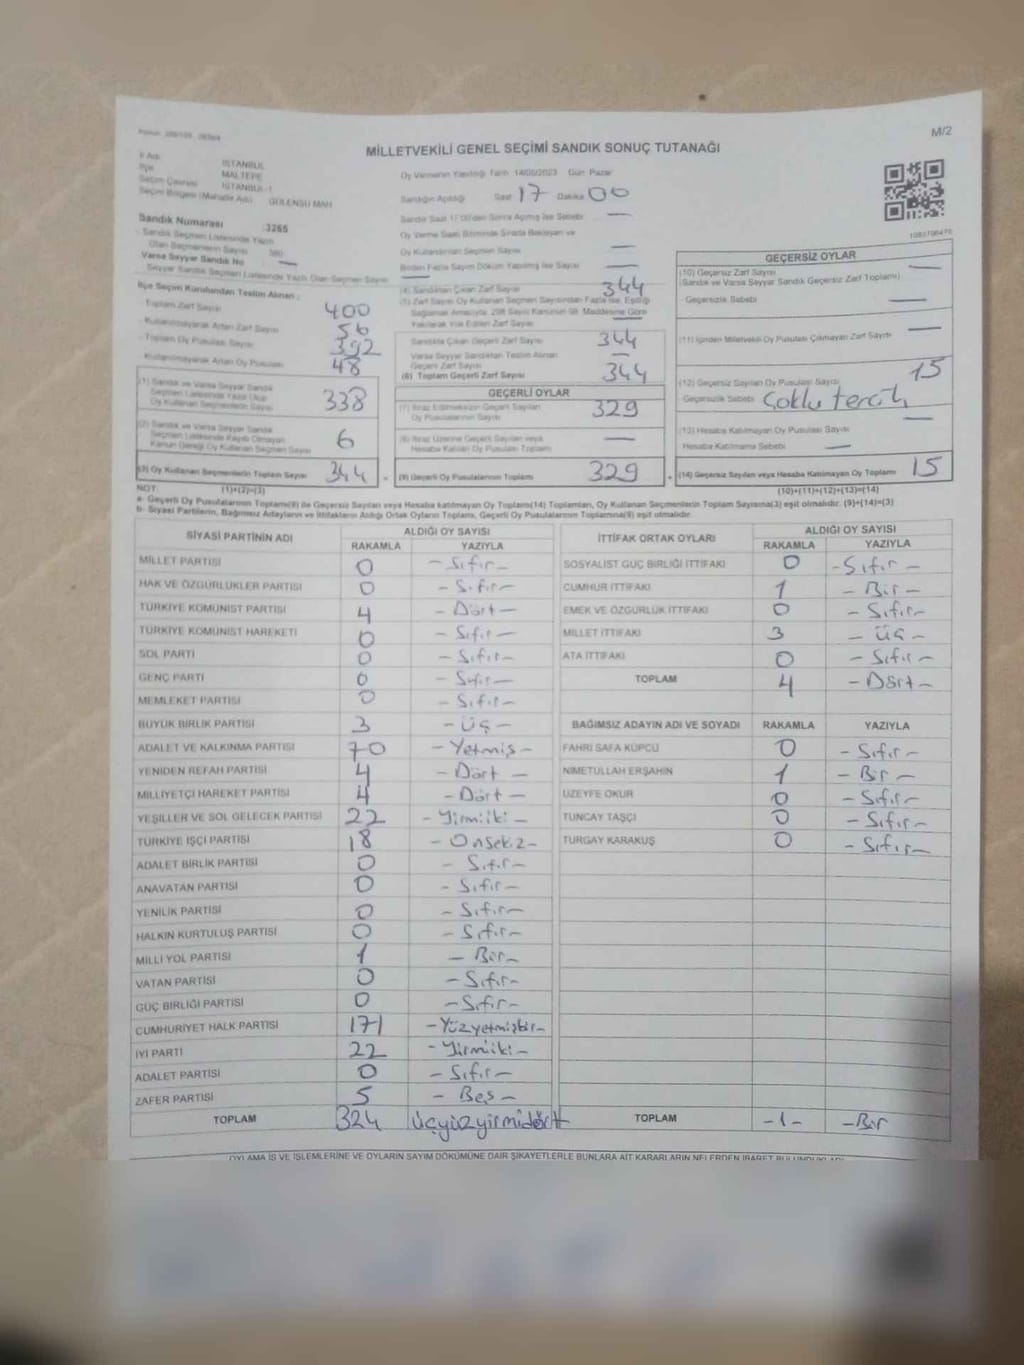 M/2
MİLLETVEKİLİ GENEL SEÇİMİ SANDIK SONUÇ TUTANAĞI
İl Adı İSTANBUL
İlçe MALTEPE
Seçim Çevresi İSTANBUL-1
Seçim Bölgesi (Mahalle Adı) GÜLENSU MAH
Sandık Numarası 3265
Sandık Seçmen Listesinde Yazılı
Olan Seçmenlerin Sayısı 380
Varsa Seyyar Sandık No —
Seyyar Sandık Listesinde Yazılı Olan Seçmen Sayısı —
İlçe Seçim Kurulundan Teslim Alınan :
Toplam Zarf Sayısı 400
Kullanılmayarak Artan Zarf Sayısı 56
Toplam Oy Pusulası Sayısı 392
Kullanılmayarak Artan Oy Pusulası 48
(1) Sandık ve Varsa Seyyar Sandık
Seçmen Listesinde Yazılı Olup
Oy Kullanan Seçmenlerin Sayısı 338
(2) Sandık ve Varsa Seyyar Sandık
Seçmen Listesinde Kaydı Olmayan
Kanun Gereği Oy Kullanan Seçmen Sayısı 6
(3) Oy Kullanan Seçmenlerin Toplam Sayısı 344
Oy Vermenin Yapıldığı Tarih 14/05/2023 Gün Pazar
Sandığın Açıldığı Saat 17 Dakika 00
Sandık Saat 17.00'den Sonra Açılmış İse Sebebi —
Oy Verme Saati Bitiminde Sırada Bekleyen ve
Oy Kullandırılan Seçmen Sayısı —
Birden Fazla Sayım Döküm Yapılmış İse Sayısı —
(4) Sandıktan Çıkan Zarf Sayısı 344
(5) Zarf Sayısı Oy Kullanan Seçmen Sayısından Fazla İse, Eşitliği
Sağlamak Amacıyla, 298 Sayılı Kanunun 98. Maddesine Göre
Yakılarak Yok Edilen Zarf Sayısı —
Sandıkta Çıkan Geçerli Zarf Sayısı 344
Varsa Seyyar Sandıktan Teslim Alınan
Geçerli Zarf Sayısı —
(6) Toplam Geçerli Zarf Sayısı 344
GEÇERLİ OYLAR
(7) İtiraz Edilmeksizin Geçerli Sayılan
Oy Pusulası Sayısı 329
(8) İtiraz Üzerine Geçerli Sayılan veya
Hesaba Katılan Oy Pusulası Toplamı —
(9) Geçerli Oy Pusulalarının Toplamı 329
1093706470
GEÇERSİZ OYLAR
(10) Geçersiz Zarf Sayısı
(Sandık ve Varsa Seyyar Sandık Geçersiz Zarf Toplamı) —
Geçersizlik Sebebi —
(11) İçinden Milletvekili Oy Pusulası Çıkmayan Zarf Sayısı —
(12) Geçersiz Sayılan Oy Pusulası Sayısı 15
Geçersizlik Sebebi Çoklu tercih
(13) Hesaba Katılmayan Oy Pusulası Sayısı —
Hesaba Katılmama Sebebi —
(14) Geçersiz Sayılan veya Hesaba Katılmayan Oy Toplamı 15
NOT: (1)+(2)=(3) (10)+(11)+(12)+(13)=(14)
a- Geçerli Oy Pusulalarının Toplamı(9) ile Geçersiz Sayılan veya Hesaba katılmayan Oy Toplamı(14) Toplamları, Oy Kullanan Seçmenlerin Toplam Sayısına(3) eşit olmalıdır. (9)+(14)=(3)
b- Siyasi Partilerin, Bağımsız Adayların ve İttifakların Aldığı Ortak Oyların Toplamı, Geçerli Oy Pusulalarının Toplamına(9) eşit olmalıdır.
SİYASİ PARTİNİN ADI ALDIĞI OY SAYISI
RAKAMLA YAZIYLA
MİLLET PARTİSİ 0 -Sıfır-
HAK VE ÖZGÜRLÜKLER PARTİSİ 0 -Sıfır-
TÜRKİYE KOMÜNİST PARTİSİ 4 -Dört-
TÜRKİYE KOMÜNİST HAREKETİ 0 -Sıfır-
SOL PARTİ 0 -Sıfır-
GENÇ PARTİ 0 -Sıfır-
MEMLEKET PARTİSİ 0 -Sıfır-
BÜYÜK BİRLİK PARTİSİ 3 -Üç-
ADALET VE KALKINMA PARTİSİ 70 -Yetmiş-
YENİDEN REFAH PARTİSİ 4 -Dört-
MİLLİYETÇİ HAREKET PARTİSİ 4 -Dört-
YEŞİLLER VE SOL GELECEK PARTİSİ 22 -Yirmiiki-
TÜRKİYE İŞÇİ PARTİSİ 18 -Onsekiz-
ADALET BİRLİK PARTİSİ 0 -Sıfır-
ANAVATAN PARTİSİ 0 -Sıfır-
YENİLİK PARTİSİ 0 -Sıfır-
HALKIN KURTULUŞ PARTİSİ 0 -Sıfır-
MİLLİ YOL PARTİSİ 1 -Bir-
VATAN PARTİSİ 0 -Sıfır-
GÜÇ BİRLİĞİ PARTİSİ 0 -Sıfır-
CUMHURİYET HALK PARTİSİ 171 -Yüzyetmişbir-
İYİ PARTİ 22 -Yirmiiki-
ADALET PARTİSİ 0 -Sıfır-
ZAFER PARTİSİ 5 -Beş-
TOPLAM 324 Üçyüzyirmidört
İTTİFAK ORTAK OYLARI ALDIĞI OY SAYISI
RAKAMLA YAZIYLA
SOSYALİST GÜÇ BİRLİĞİ İTTİFAKI 0 -Sıfır-
CUMHUR İTTİFAKI 1 -Bir-
EMEK VE ÖZGÜRLÜK İTTİFAKI 0 -Sıfır-
MİLLET İTTİFAKI 3 -Üç-
ATA İTTİFAKI 0 -Sıfır-
TOPLAM 4 -Dört-
BAĞIMSIZ ADAYIN ADI VE SOYADI RAKAMLA YAZIYLA
FAHRİ SAFA KÜPÇÜ 0 -Sıfır-
NİMETULLAH ERŞAHİN 1 -Bir-
ÜZEYFE OKUR 0 -Sıfır-
TUNCAY TAŞÇI 0 -Sıfır-
TURGAY KARAKUŞ 0 -Sıfır-
TOPLAM -1- -Bir
OYLAMA İŞ VE İŞLEMLERİNE VE OYLARIN SAYIM DÖKÜMÜNE DAİR ŞİKAYETLERLE BUNLARA AİT KARARLARIN NELERDEN İBARET BULUNDUKLARI